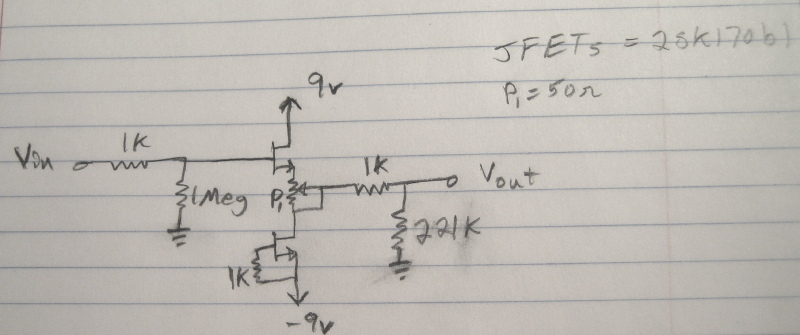 JFETs = 2SK170bl
P1 = 50Ω
9v
Vin
1K
1Meg
P1
1K
Vout
221K
1K
-9v